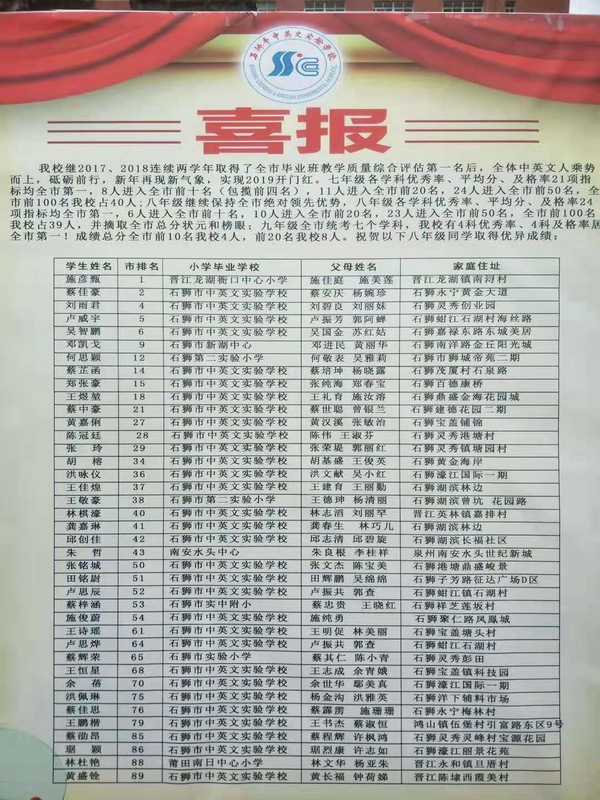 石狮市中英文实验学校
喜报
我校继2017、2018连续两学年取得了全市毕业班教学质量综合评估第一名后，全体中英文人乘势
而上，砥砺前行，新年再现新气象，实现2019开门红。七年级各学科优秀率、平均分、及格率21项指
标均全市第一，8人进入全市前十名（包揽前四名），11人进入全市前20名，24人进入全市前50名，全
市前100名我校占40人;八年级继续保持全市绝对领先优势，八年级各学科优秀率、平均分、及格率24
项指标均全市第一，6人进入全市前十名，10人进入全市前20名，23人进入全市前50名，全市前100名
我校占39人，并摘取全市总分状元和榜眼；九年级全市统考七个学科，我校有4科优秀率、4科及格率居
全市第一！成绩总分全市前10名我校4人，前20名我校8人。祝贺以下八年级同学取得优异成绩：
学生姓名 市排名 小学毕业学校 父母姓名 家庭住址
施彦甄 1 晋江龙湖衙口中心小学 施佳庭 施美莲 晋江龙湖镇南浔村
蔡佳豪 2 石狮市中英文实验学校 蔡安庆 杨婉珍 石狮永宁黄金大道
刘雨君 4 石狮市中英文实验学校 刘碧良 刘丽妹 石狮灵秀创业园
卢威宇 5 石狮市中英文实验学校 卢振芳 郭阿蝉 石狮蚶江石湖村海丝路
吴智鹏 6 石狮市中英文实验学校 吴国金 苏红姑 石狮嘉禄东路东城美居
邓凯戈 9 石狮市新湖中心 邓进民 黄丽华 石狮南洋路金丘阳光城
何思颖 12 石狮第二实验小学 何敬表 吴雅莉 石狮市狮城帝苑二期
蔡芷函 14 石狮市中英文实验学校 蔡培坤 杨晓露 石狮茂厦村石泉路
郑张豪 15 石狮市中英文实验学校 张纯海 郑春宝 石狮百德康桥
王煜堃 18 石狮市中英文实验学校 王礼育 施汝溶 石狮鼎盛金海花园城
蔡中豪 21 石狮市中英文实验学校 蔡世聪 曾银兰 石狮建德花园二期
黄嘉俐 27 石狮市中英文实验学校 黄汉溪 张敏治 石狮宝盖铺锦
陈冠廷 28 石狮市中英文实验学校 陈伟 王淑芬 石狮灵秀港塘村
张玲 29 石狮市中英文实验学校 张荣堤 郭丽红 石狮灵秀镇塘园村
胡榕 34 石狮市中英文实验学校 胡基盛 王俊英 石狮黄金海岸
洪咏仪 36 石狮市中英文实验学校 洪文献 吴小红 石狮濠江国际一期
王佳煌 37 石狮市中英文实验学校 王建育 王丽勤 石狮湖滨林边
王敬豪 38 石狮市第二实验小学 王德珅 杨清丽 石狮湖滨曾坑 花园路
林棋濠 40 石狮市中英文实验学校 林志滔 刘丽罕 晋江英林镇嘉排村
龚嘉琳 41 石狮市中英文实验学校 龚春生 林巧儿 石狮湖滨林边
邱创佳 42 石狮市中英文实验学校 邱志清 邱碧旋 石狮湖滨长福社区
朱哲 43 南安水头中心 朱良根 李桂祥 泉州南安水头世纪新城
张铭城 50 石狮市中英文实验学校 张文杰 陈宝美 石狮港塘鼎盛峻景
田铭尉 51 石狮市中英文实验学校 田辉鹏 吴绵绵 石狮子芳路征达广场D区
卢思辰 52 石狮市中英文实验学校 卢振共 郭查 石狮蚶江镇石湖村
蔡梓涵 53 石狮市实中附小 蔡忠贵 王晓红 石狮祥芝莲坂村
施俊蔚 54 石狮市中英文实验学校 施纯勇 石狮聚仁路凤凰城
王诗瑶 61 石狮市中英文实验学校 王明促 林美丽 石狮宝盖塘头村
卢思烨 64 石狮市中英文实验学校 卢振共 郭查 石狮蚶江石湖村
蔡辉荣 65 石狮市实验小学 蔡其仁 陈小青 石狮灵秀彭田
王恒星 68 石狮市中英文实验学校 王志成 余青娥 石狮宝盖镇科技园
余蓓 70 石狮市中英文实验学校 余世华 鄢美真 石狮濠江国际一期
洪佩琳 75 石狮市中英文实验学校 杨金沟 洪雅英 石狮洋下辅料市场
蔡佳思 76 石狮市中英文实验学校 蔡霹雳 施珊珊 石狮永宁梅林村
王鹏楷 79 石狮市中英文实验学校 王书杰 蔡淑恒 鸿山镇伍堡村引富路东区9号
蔡劭昂 85 石狮市中英文实验学校 蔡程辉 许枫鸿 石狮灵秀灵峰村宝源花园
琚颖 86 石狮市中英文实验学校 琚烈康 许志如 石狮濠江丽景花苑
林杜艳 88 莆田南日中心小学 林文华 杨亚朱 晋江永和镇旦厝村
黄盛铨 89 石狮市中英文实验学校 黄长福 钟荷娣 晋江陈埭西霞美村